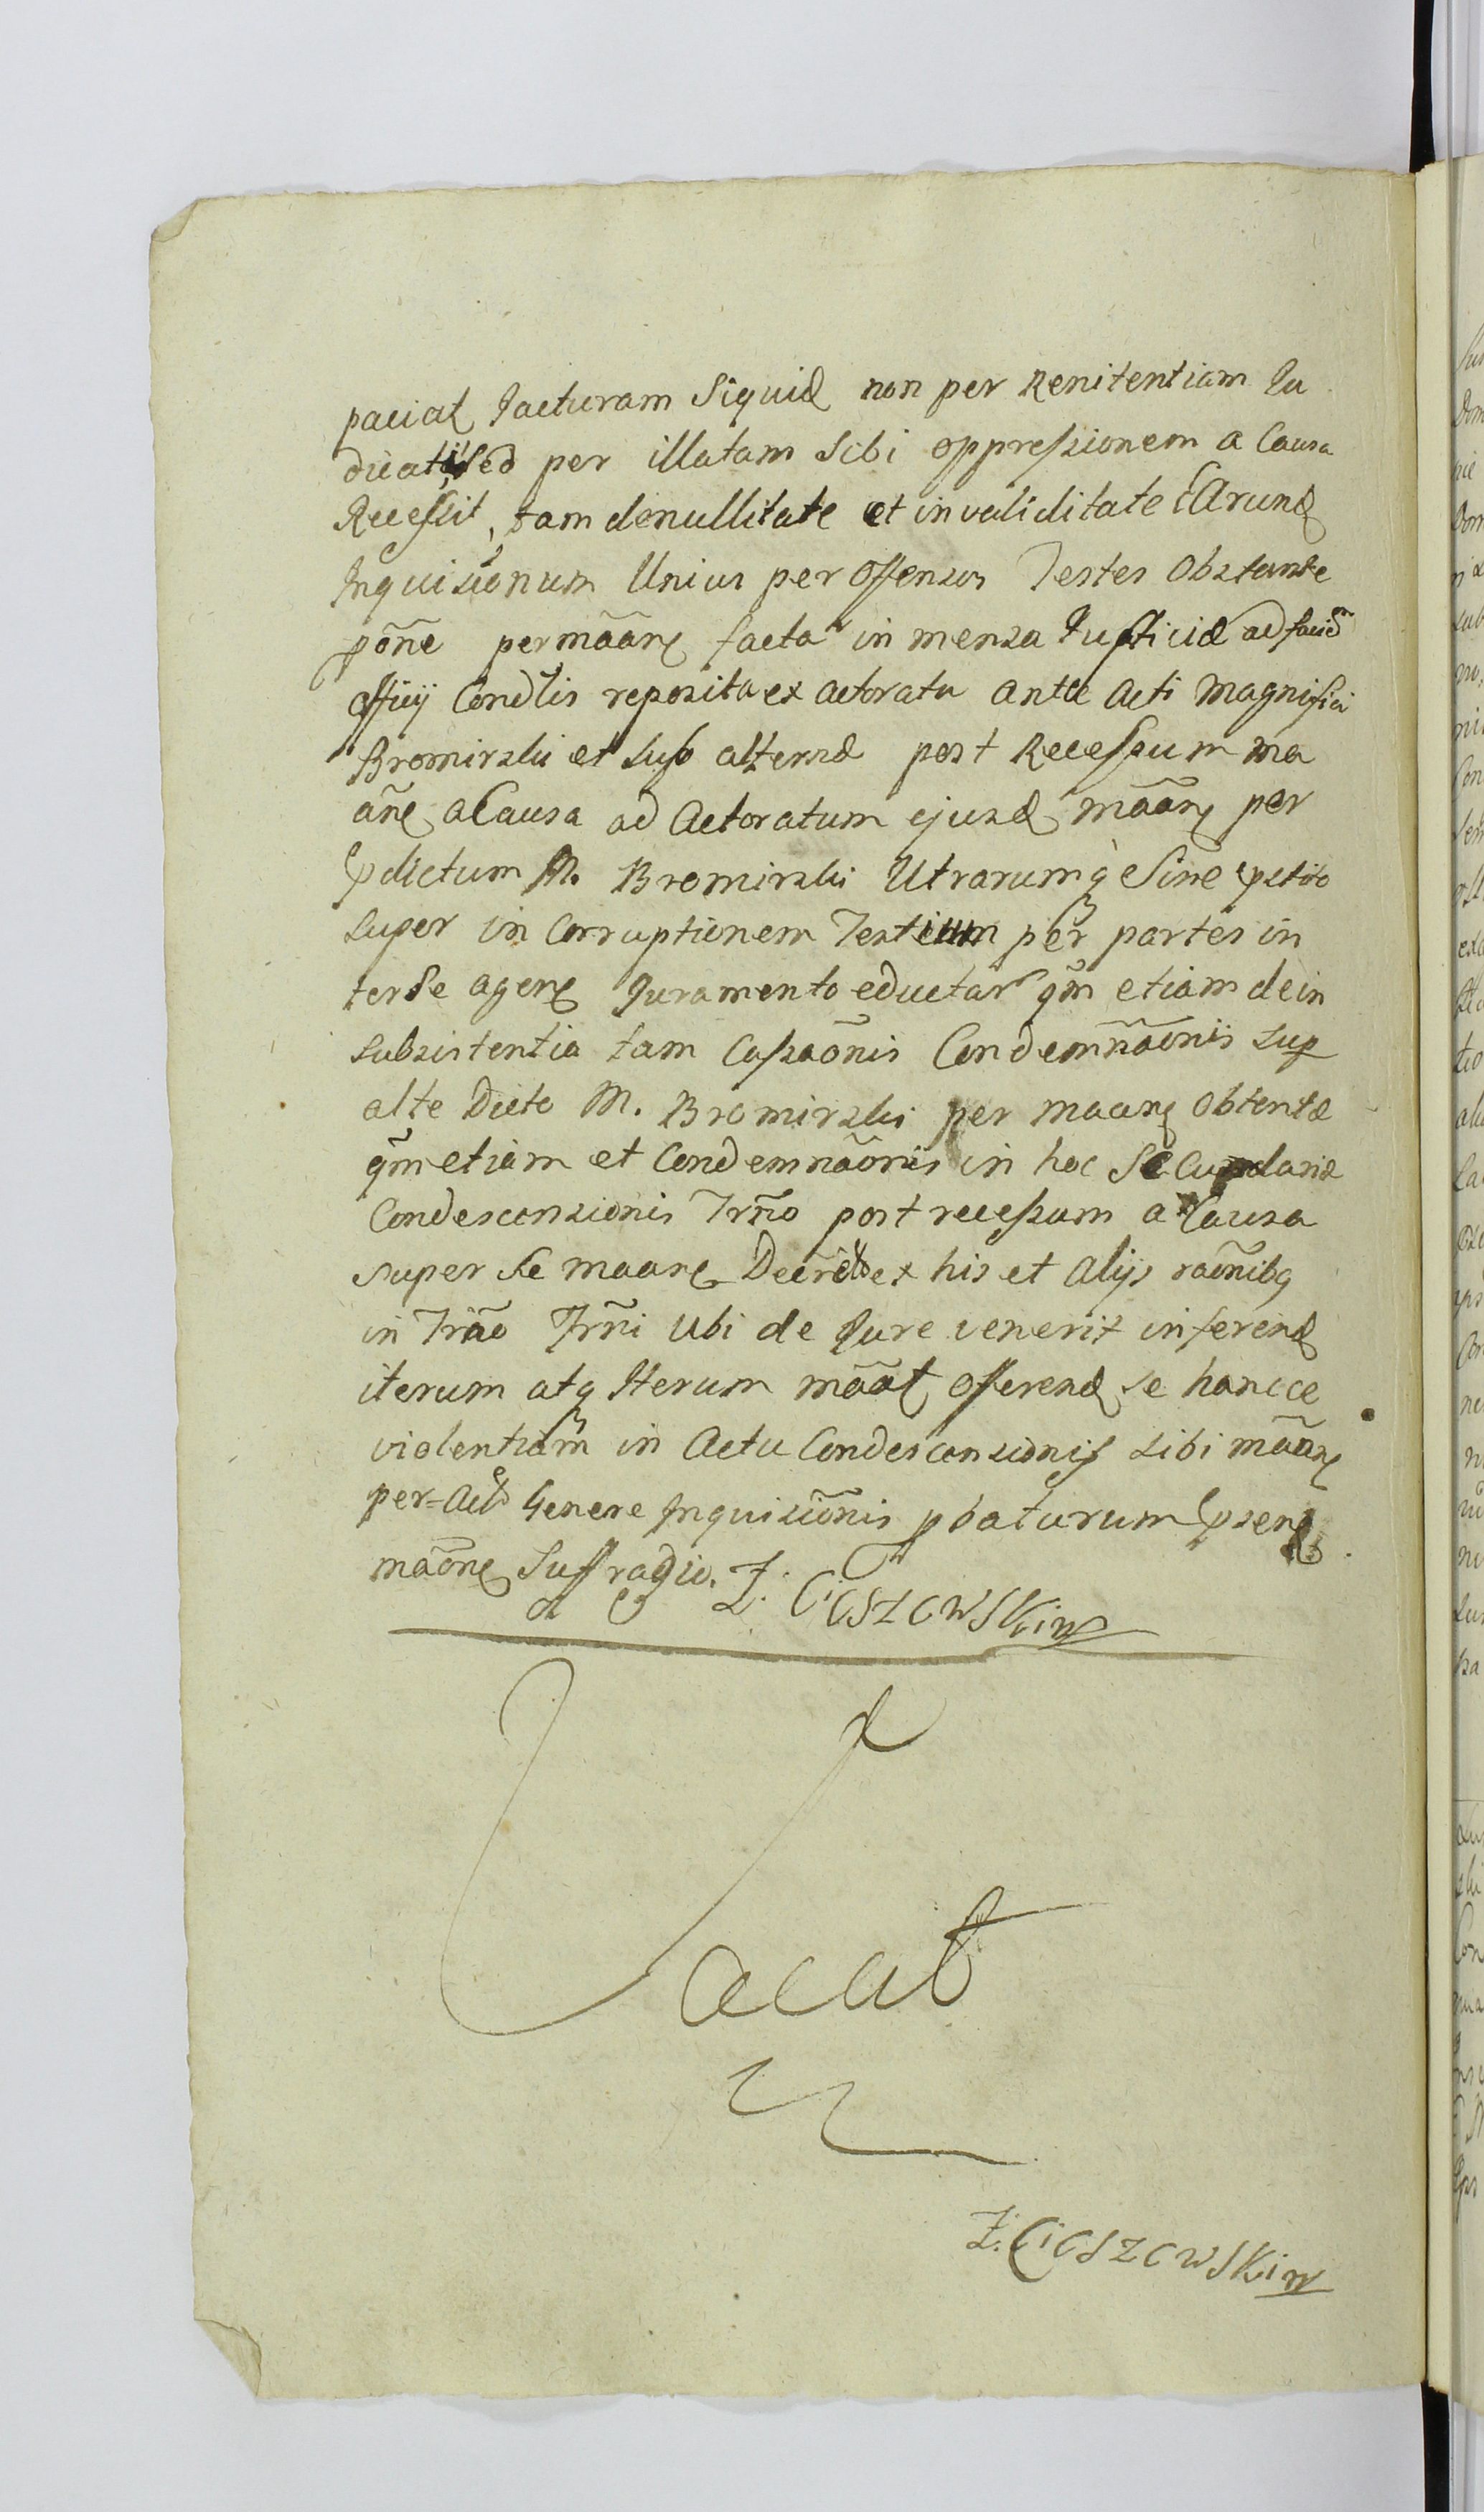 paciat Jacturam Siquid non per Renitentiam Ju
dicat sed per illatam Sibi oppreſsionem a Causa
Receſsit, tam denullitate et invaliditate Earund
Inquisionum Unius per offensos Testes Obstante
põne permãan facta in mensa Justiciæ ad facie
offiij Condlis reposita ex actoratu ante Acti Magnifici
Bromirski et sub altersæ post Receſsum ma
añe a Causa ad Actoratum ejusd mãan per
pdictum M. Bromirski Utrarumq Sine
super in Corruptionem Testium per partes in
ter Se agen Juramento eductar qm etiam de in
subsistentia tam Caſsaõnis Condemñaõnis sup
alte Dicto M. Bromirski per maan Obtentæ
qm etiam et Condemnaõnis in hoc Secundariæ
Condescensionis Trño post receſsum a Causa
super Se maan Decreto ex his et Alijs raõnibq
in Trão Trñi Ubi de Jure venerit inferend
iterum atq Iterum mãat Offerend se hancce
violentiam in Actu Condescensionis sibi mãan
per Acto Genere Inquisiõnis pbaturum psen
maõne Suffragio. Z. CiCSZCWSKi mp
Vacat
Z. CiCSZCWSKi mp